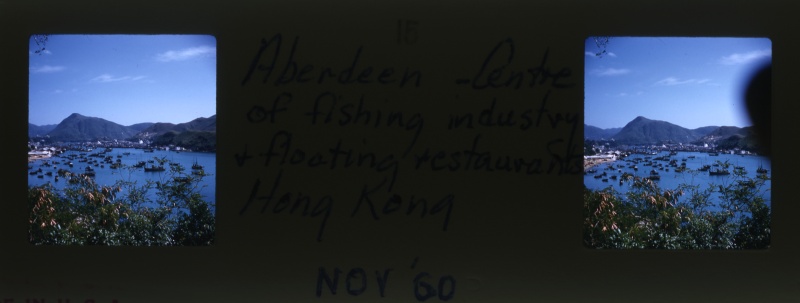 18
Aberdeen - Centre
of fishing industry
+ floating restaurants
Hong Kong
NOV '60